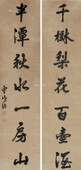 千樹梨花百壺酒
半潭秋水一房山